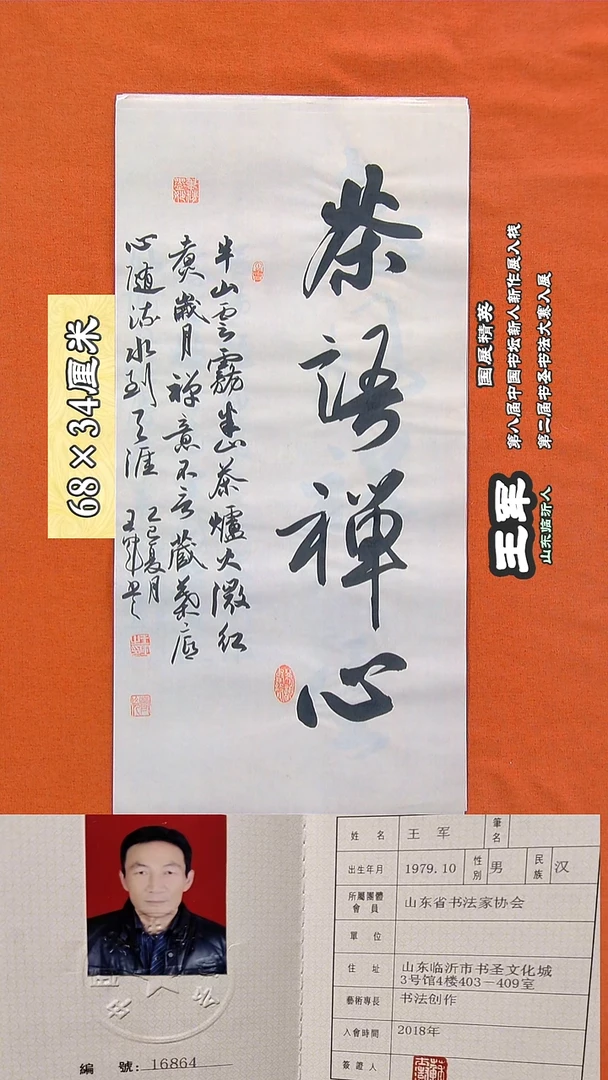 茶語禅心
半山雲霧半山茶爐火微紅
煮歲月禅意不言藏葉底
心随流水到天涯
乙巳夏月
王军书
68×34厘米
國展精英
第八届中国书坛新人新作展入展
第二届书圣书法大赛入展
王军
山东临沂人
編 號: 16864
姓 名 王 军 筆名
出生年月 1979.10 性別 男 民族 汉
所屬團體會員 山东省书法家协会
單 位
住 址 山东临沂市书圣文化城
3号馆4楼403-409室
藝術專長 书法创作
入會時間 2018年
簽證人